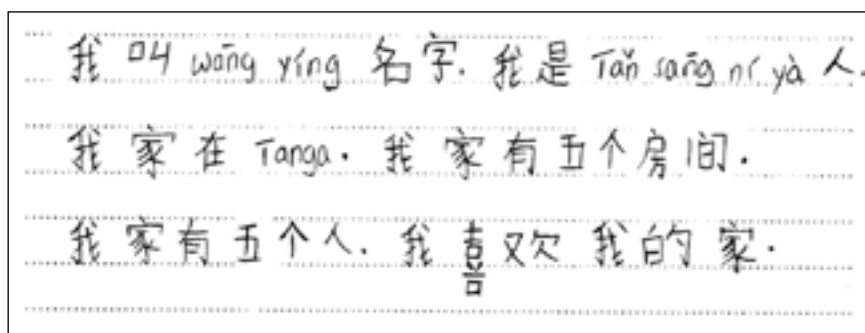 我 叫 wāng yíng 名字. 我是 Tǎn sāng ní yà 人.
我 家 在 Tanga. 我 家 有 五 个 房 间.
我 家 有 五 个 人. 我 喜 欢 我 的 家.